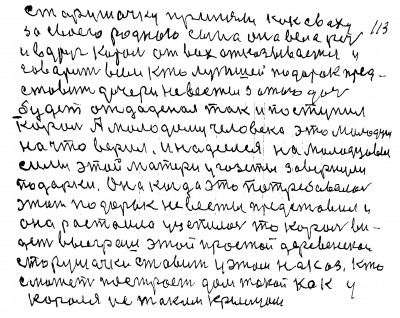 старушачку приняли как сваху 113
за своего родного сына она вела реч
и вдруг король от вах отказывается и
говарит вам кто лутшей подарок пред-
ставит дочери невесты за тово доч
будет отдаденая так и поступил
король А молодому человека это молодцу
на что верил. И надеялся на молодцовы
силы этой матери у газеты завернули
подарки. Она когда это потребавалос
этот подарок невесты представил и
она растаила упстилос то король ви-
дет выеграш этой простой деревенской
старушачки ставит и этом наказ, кто
сможет построет дом такой как у
короля не таким крыльцом